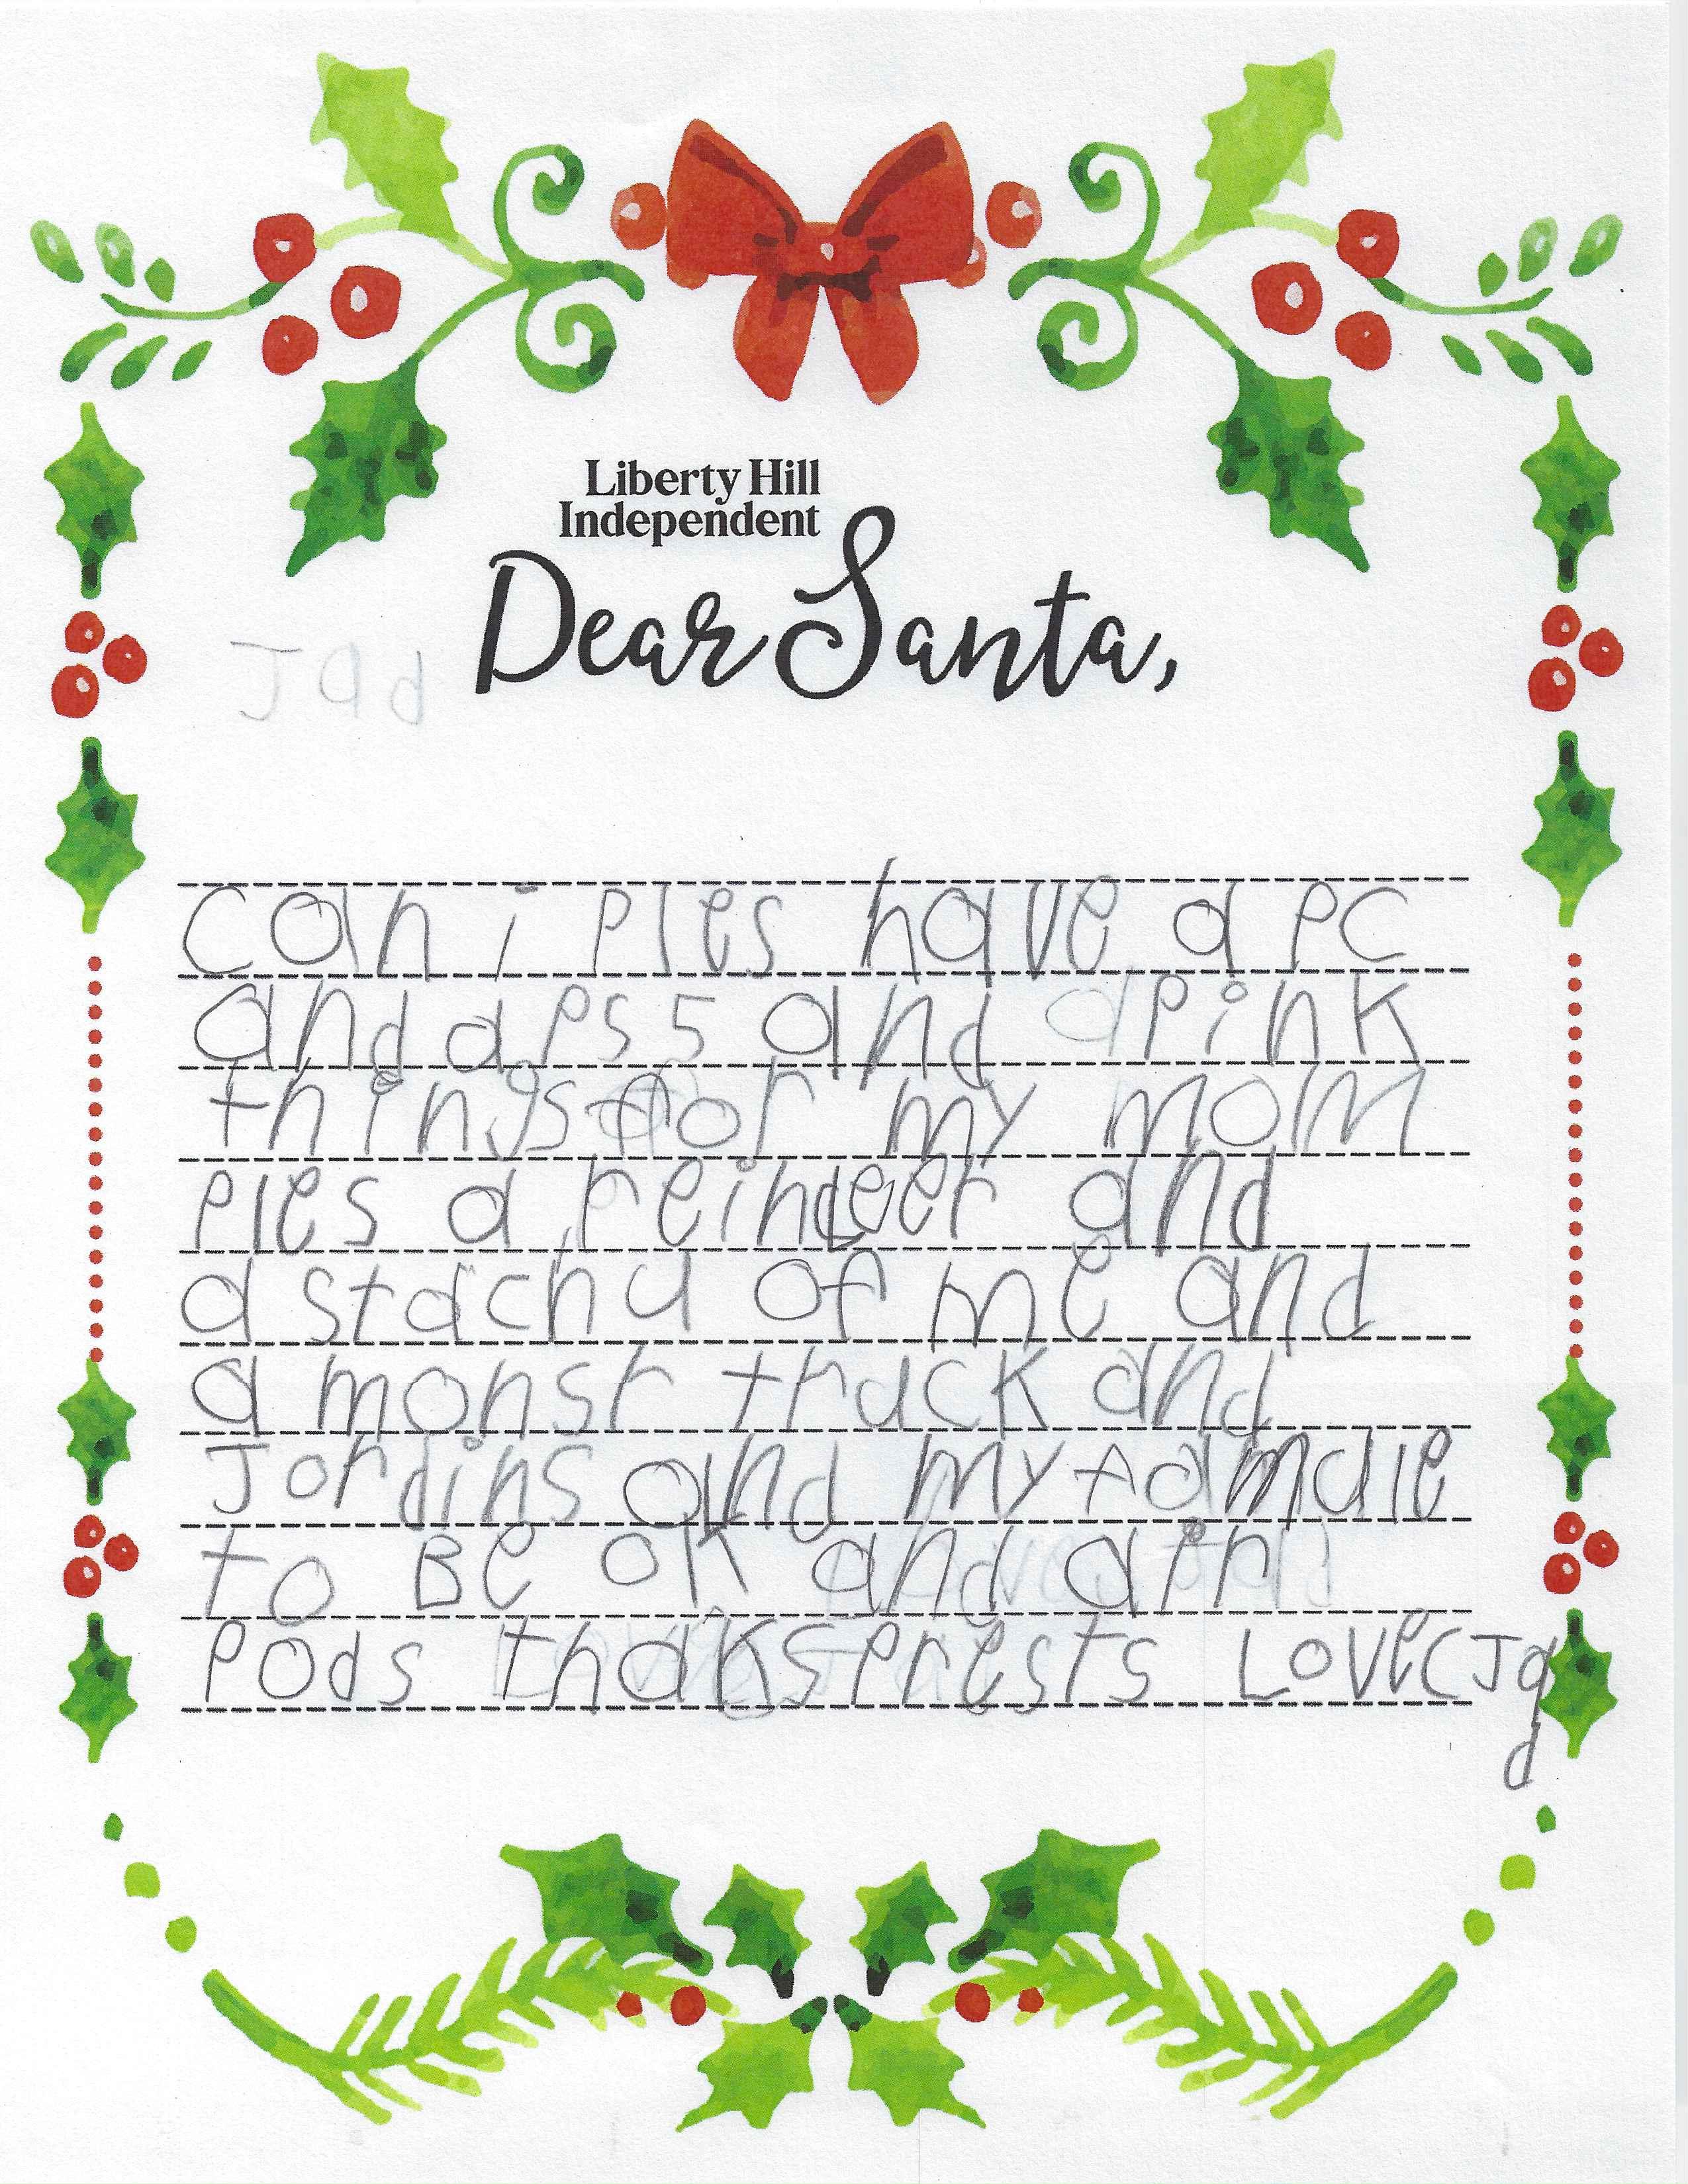 Liberty Hill
Independent
Dear Santa,
Jad
can i ples have a PC
and a PS5 and a Pink
things for my mom
Ples a reindeer and
a stachu of me and
a monsr truck and
Jordins and my famule
to Be ok and air
Pods thaks Prests Love Jad